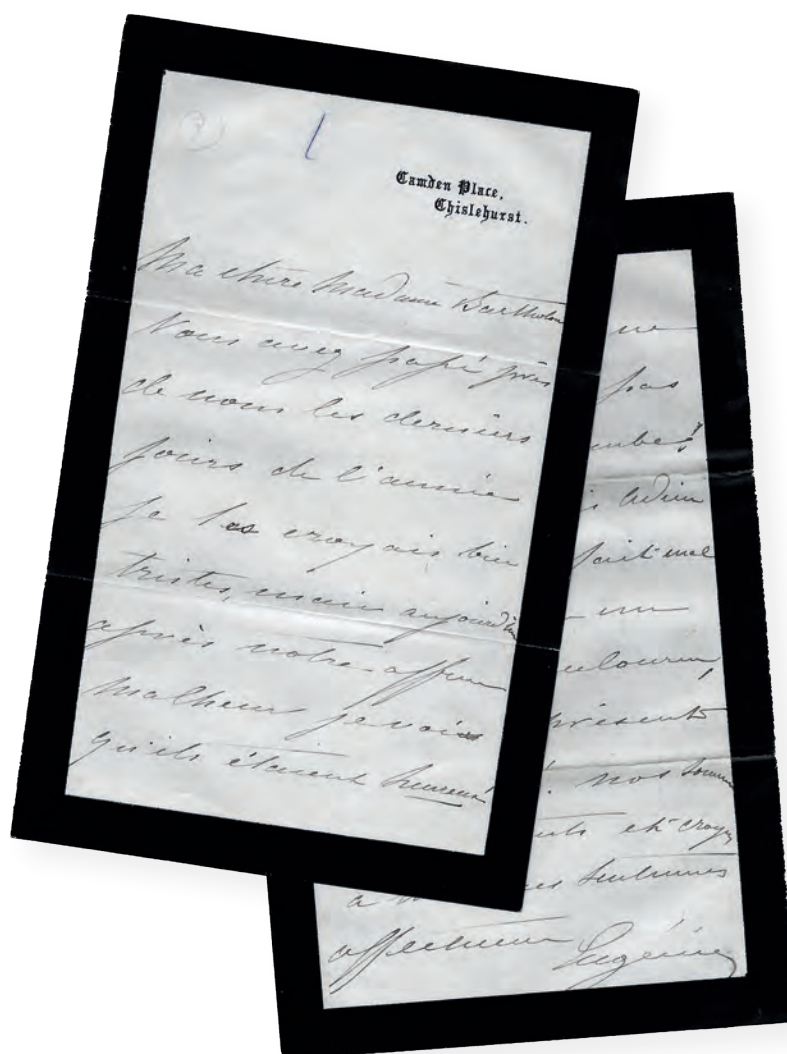 Camden Place,
Chislehurst.
Ma chère Madame Bartholoni
Vous avez passé près
de nous les derniers
jours de l'année
je les croyais bien
tristes, mais aujourd'hui
après notre affreux
malheur je vois
qu'ils étaient heureux!
ne
pas
Adieu
fait mal
un
douloureux,
présent
nos
et croyez
a
affectueux Eugénie